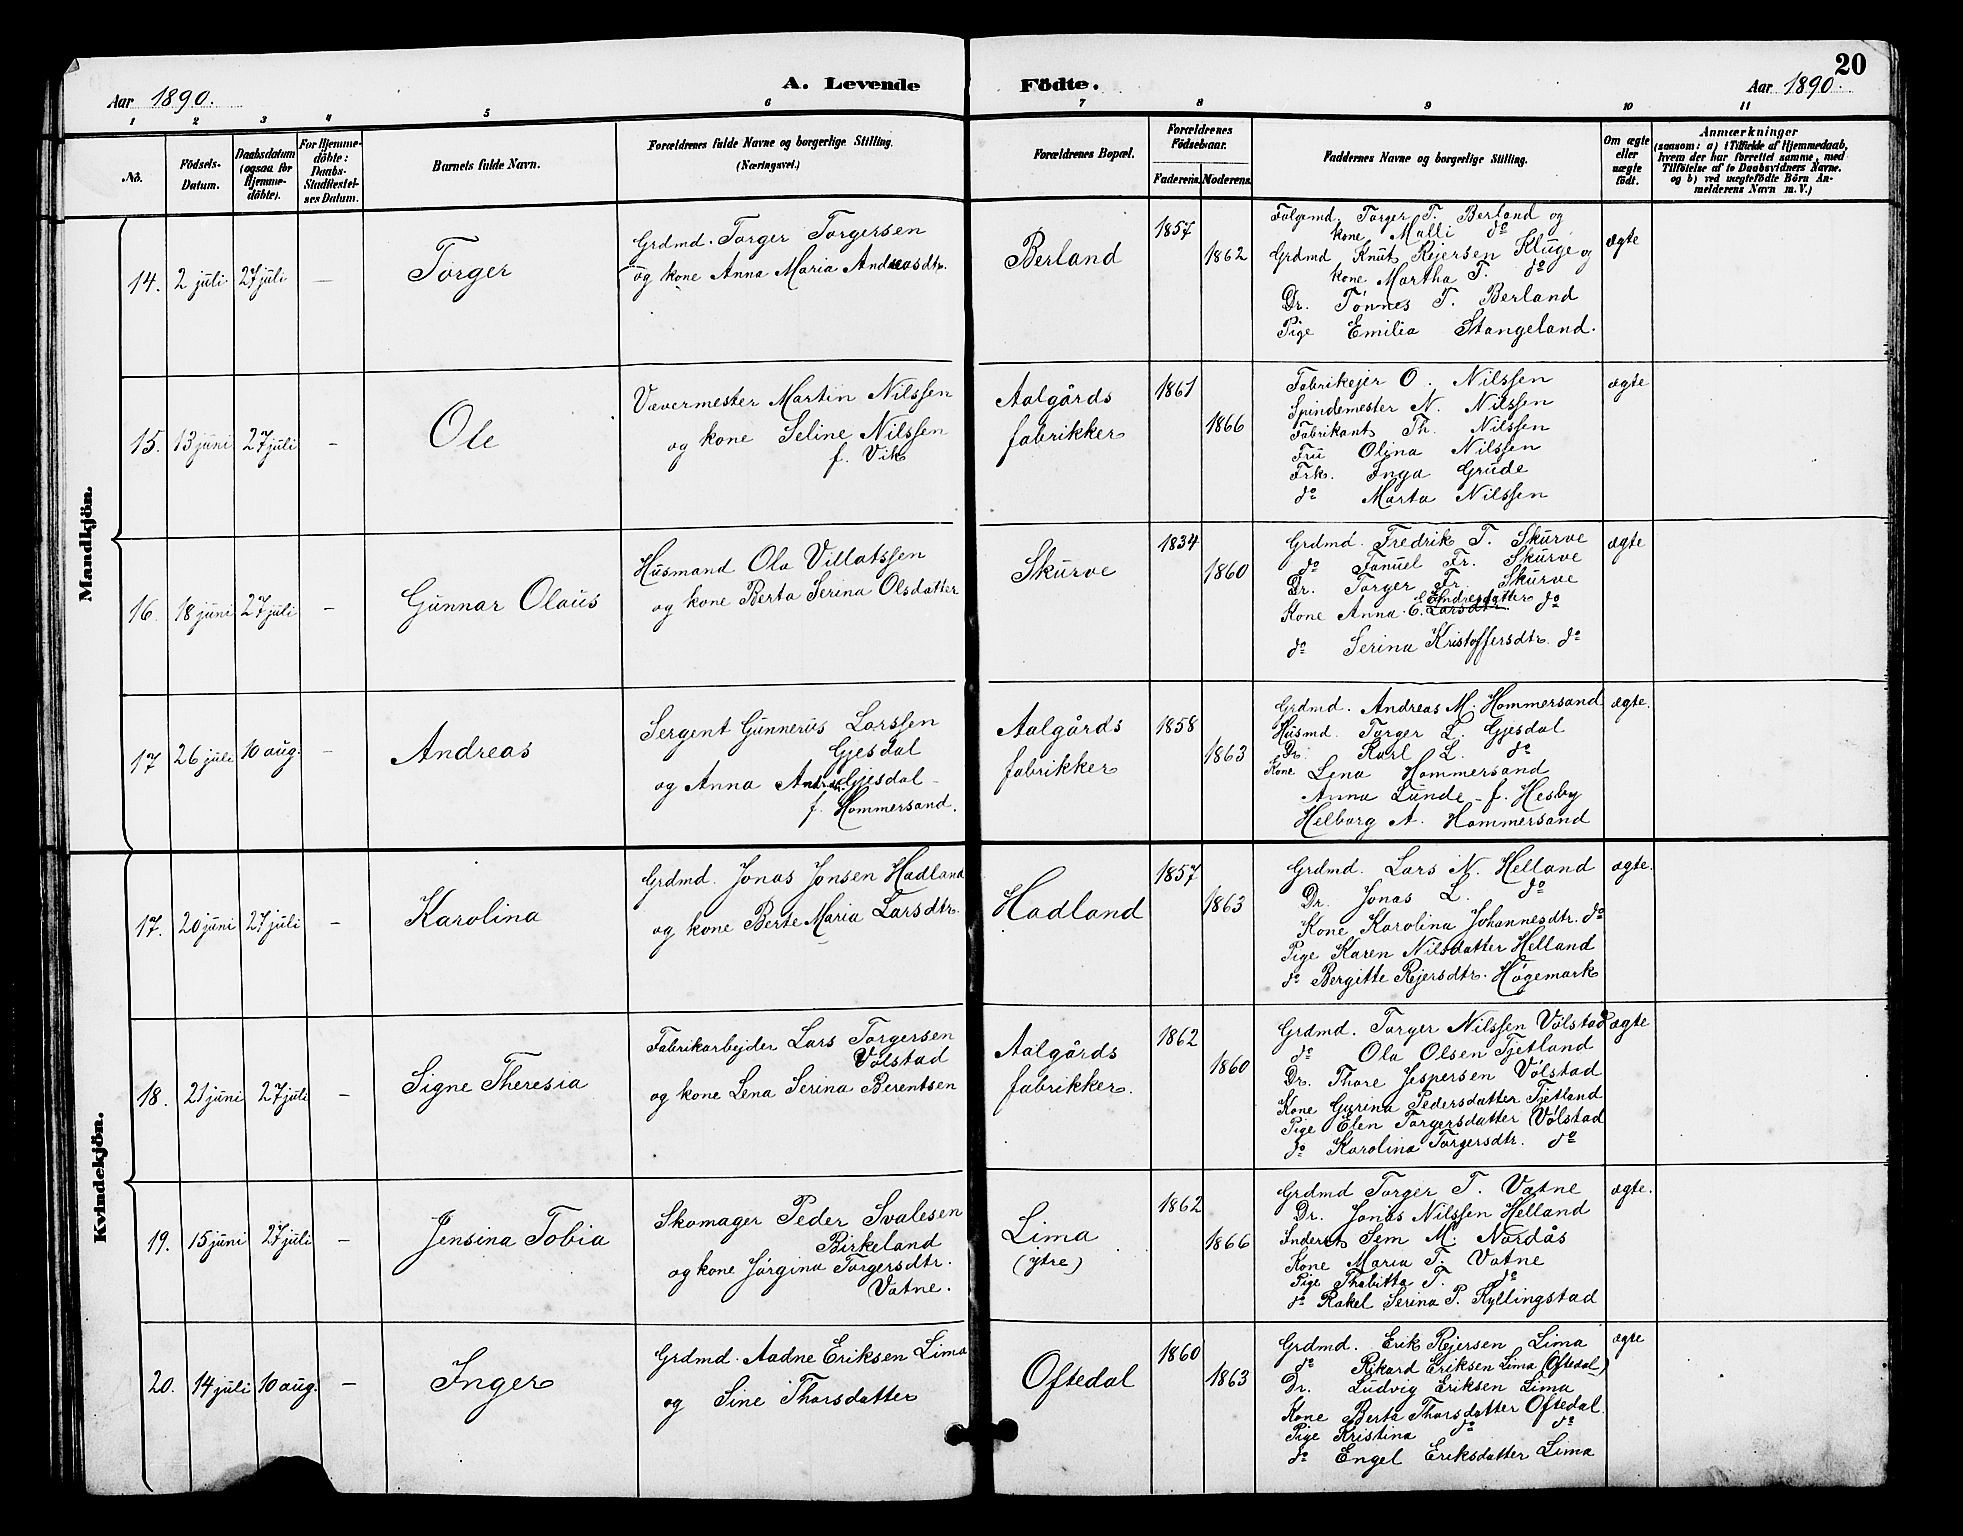 20
Aar 1890.
A. Levende Födte.
Aar 1890.
1 2 3 4 5 6 7 8 9 10 11
No.
Födsels-
Datum.
Daabsdatum
(ogsaa for
Hjemme-
döbte).
For Hjemme-
döbte:
Daabs-
Stadfæstel-
ses Datum.
Barnets fulde Navn.
Forældrenes fulde Navne og borgerlige Stilling.
(Næringsvei.)
Forældrenes Bopæl.
Forældrenes
Födselsaar.
Faderens. Moderens.
Faddernes Navne og borgerlige Stilling.
Om ægte
eller
uægte
födt.
Anmærkninger
(saasom: a) i Tilfælde af Hjemmedaab,
hvem der har forrettet samme, med
Tilföielse af to Daabsvidners Navne,
og b) ved uægtefödte Börn An-
melderens Navn m. V.)
Mandkjön.
14. 2 juli 27 juli — Torger
Grdmd. Torger Torgersen
og kone Anna Maria Andreasdtr.
Berland
1857
1862
Folgemd. Torger T. Berland og
kone Malli do
Grdmd Knut Rejersen Kluge og
kone Martha T. do
Dr. Tønnes T. Berland
Pige Emilia Stangeland.
ægte
15. 13 juni 27 juli — Ole
Vævermester Martin Nilssen
og kone Seline Nilssen
f. Vik
Aalgårds
fabrikker
1861
1866
Fabrikejer O. Nilssen
Spindemester N. Nilssen
Fabrikant Th. Nilssen
Fru Olina Nilssen
Frk. Inga Grude
do Marta Nilssen
ægte
16. 18 juni 27 juli — Gunnar Olaus
Husmand Ola Villatssen
og kone Berta Serina Olsdatter
Skurve
1834
1860
Grdmd. Fredrik T. Skurve
do Fanuel Fr. Skurve
Dr. Torger Fr. Skurve
Endresdatter
Kone Anna C. Larsdtr. do
do Serina Kristoffersdtr. do
ægte
17 26 juli 10 aug. — Andreas
Sergent Gunnerus Larssen
Gjesdal
og Anna Gjesdal
f. Hommersand.
Aalgårds
fabrikker
1858
1863
Grdmd. Andreas M. Hommersand
Husmd. Torger L. Gjesdal
Dr. Karl L. do
Kone Lena Hommersand
Anna Lunde f. Hesby
Helborg A. Hommersand
ægte.
Kvindekjön.
17. 20 juni 27 juli — Karolina
Grdmd. Jonas Jonsen Hadland
og kone Berte Maria Larsdtr.
Hadland
1857
1863
Grdmd. Lars N. Helland
Dr. Jonas L. do
Kone Karolina Johannesdtr. do
Pige Karen Nilsdatter Helland
do Bergitte Rejersdtr. Høgemark
ægte.
18. 21 juni 27 juli — Signe Theresia
Fabrikarbejder Lars Torgersen
Vølstad
og kone Lena Serina Berentsen
Aalgårds
fabrikker.
1862
1860
Grdmd. Torger Nilssen Vølstad
do Ola Olsen Tjetland
Dr. Thore Jespersen Vølstad
Kone Gurina Pedersdatter Tjetland
Pige Elen Torgersdatter Vølstad
do Karolina Torgersdtr. do
ægte
19. 15 juni 27 juli — Jensina Tobia
Skomager Peder Svalesen
Birkeland
og kone Jørgina Torgersdtr.
Vatne.
Lima
(ytre)
1862
1866
Grdmd Torger T. Vatne
Dr. Jonas Nilssen Helland
Inderst Sem M. Nordås
Kone Maria T. Vatne
Pige Thabitta T. do
do Rakel Serina P. Kyllingstad
ægte.
20. 14 juli 10 aug. — Inger
Grdmd. Aadne Eriksen Lima
og Sine Thorsdatter
Oftedal
1860
1863
Grdmd. Erik Rejersen Lima
do Rikard Eriksen Lima (Oftedal)
Dr. Ludvig Eriksen Lima
Kone Berta Thorsdatter Oftedal.
Pige Kristina do do
do Engel Eriksdatter Lima
ægte